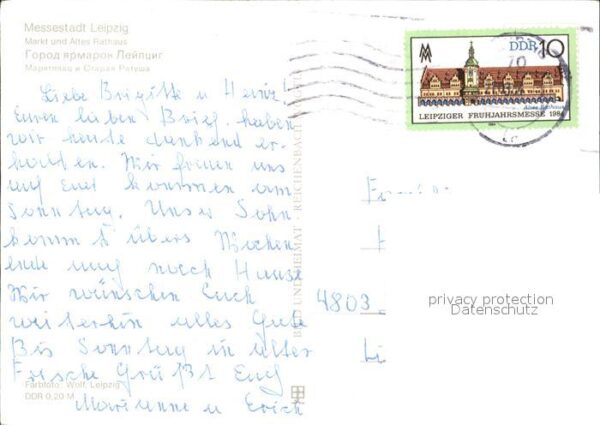 Messestadt Leipzig
Markt und Altes Rathaus
Город ярмарок Лейпциг
Маркплац и Старая Ратуша
Liebe Brigitte u Heinz!
Euren lieben Brief haben
wir heute dankend er-
halten. Wir freuen uns
auf Euer kommen am
Sonntag. Unser Sohn
kommt übers Wochen
ende auf nach Hause
Wir wünschen Euch
weiterhin alles Gute
Bis Sonntag in alter
Frische Grüßt Euch
Marianne u Erich
Farbfoto: Wolf, Leipzig
DDR 0,20 M
BILD UND HEIMAT · REICHENBACH
DDR 10
Altes Rathaus
LEIPZIGER FRÜHJAHRSMESSE 1984
70
4803
privacy protection
Datenschutz